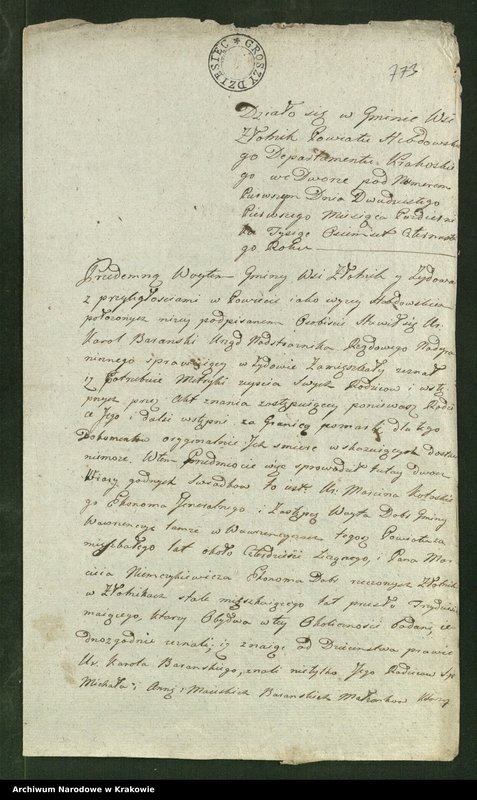 GROSZY DZIESIĘC
773
Działo się w Gminie Wsi
Złotnik Powiatu Hebdowskie
go Departamentu Krakoskie
go we Dworze pod Numerem
Pierwszym Dnia Dwudziestego
Pierwszego Miesiąca Paździer
Tysiąc Osiemset Czternaste
go Roku
Przedemną Woytem Gminy Wsi Złotnik y Łydowa
z przyległosciami w Powiecie iako wyżey Hebdowskim
położonych niżey podpisanem Osobiscie Stawił się Ur.
Karol Baranski Urząd Nadstraznika Rządowego
i prawuiący w Łydowie Zamięszkały zeznał
iż Potrzebuie Metryki zeyscia Swych Rodzicow i wstę
pnych przez Akt znania zastępuiącey ponieważ Rodzi
ce Jego i dalsi wstępni za Granicą pomarli, dla tego
Dokumentu oryginalnie Ich smierc wskazuiących dostać
niemoże. W tem Przedmiocie więc sprowadził tutay dwoch
Wiary godnych Swiadkow to iest Ur. Marcina
go Ekonoma Generalnego i Zastępcę Woyta Dobr Gminy
Wawrzenczyc tamże w Wawrzenczycach tegoż Powiatu za
mieszkałego lat około Czterdziesci Liczącego, i Pana Mar
cina Niemczykiewicza Ekonoma Dobr rzeczonych Złotnik
w Złotnikach stale mięszkaiącego lat przeszło Trzydziesci
maiącego, ktorzy Obydwa w tey Okolicznosci Badani, ie
dnozgodnie zeznali; iż znaiąc od Dziecinstwa prawie
Ur. Karola Baranskiego, znali nietylko Jego Rodzicow Sp.
Michała i Annę Baranskich Małżonkow ktorzy
Archiwum Narodowe w Krakowie